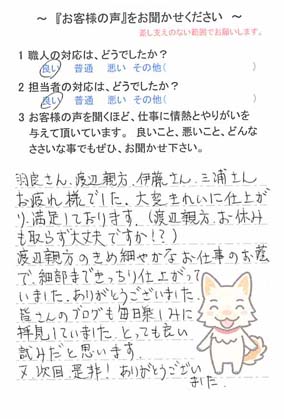 ～ 『お客様の声』をお聞かせください ～
差し支えのない範囲でお願いします。
1 職人の対応は、どうでしたか?
良い 普通 悪い その他( )
2 担当者の対応は、どうでしたか?
良い 普通 悪い その他( )
3 お客様の声を聞くほど、仕事に情熱とやりがいを
与えて頂いています。 良いこと、悪いこと、どんな
ささいな事でもぜひ、お聞かせ下さい。
羽良さん、渡辺親方、伊藤さん、三浦さん
お疲れ様でした。大変きれいに仕上が
り、満足しております。(渡辺親方、お休み
も取らず大丈夫ですか!?)
渡辺親方のきめ細やかなお仕事のお蔭
で、細部まできっちり仕上がって
いました。ありがとうございました。
皆さんのブログも毎日楽しみに
拝見していました。とっても良い
試みだと思います。
又、次回、是非! ありがとうござい
ました。